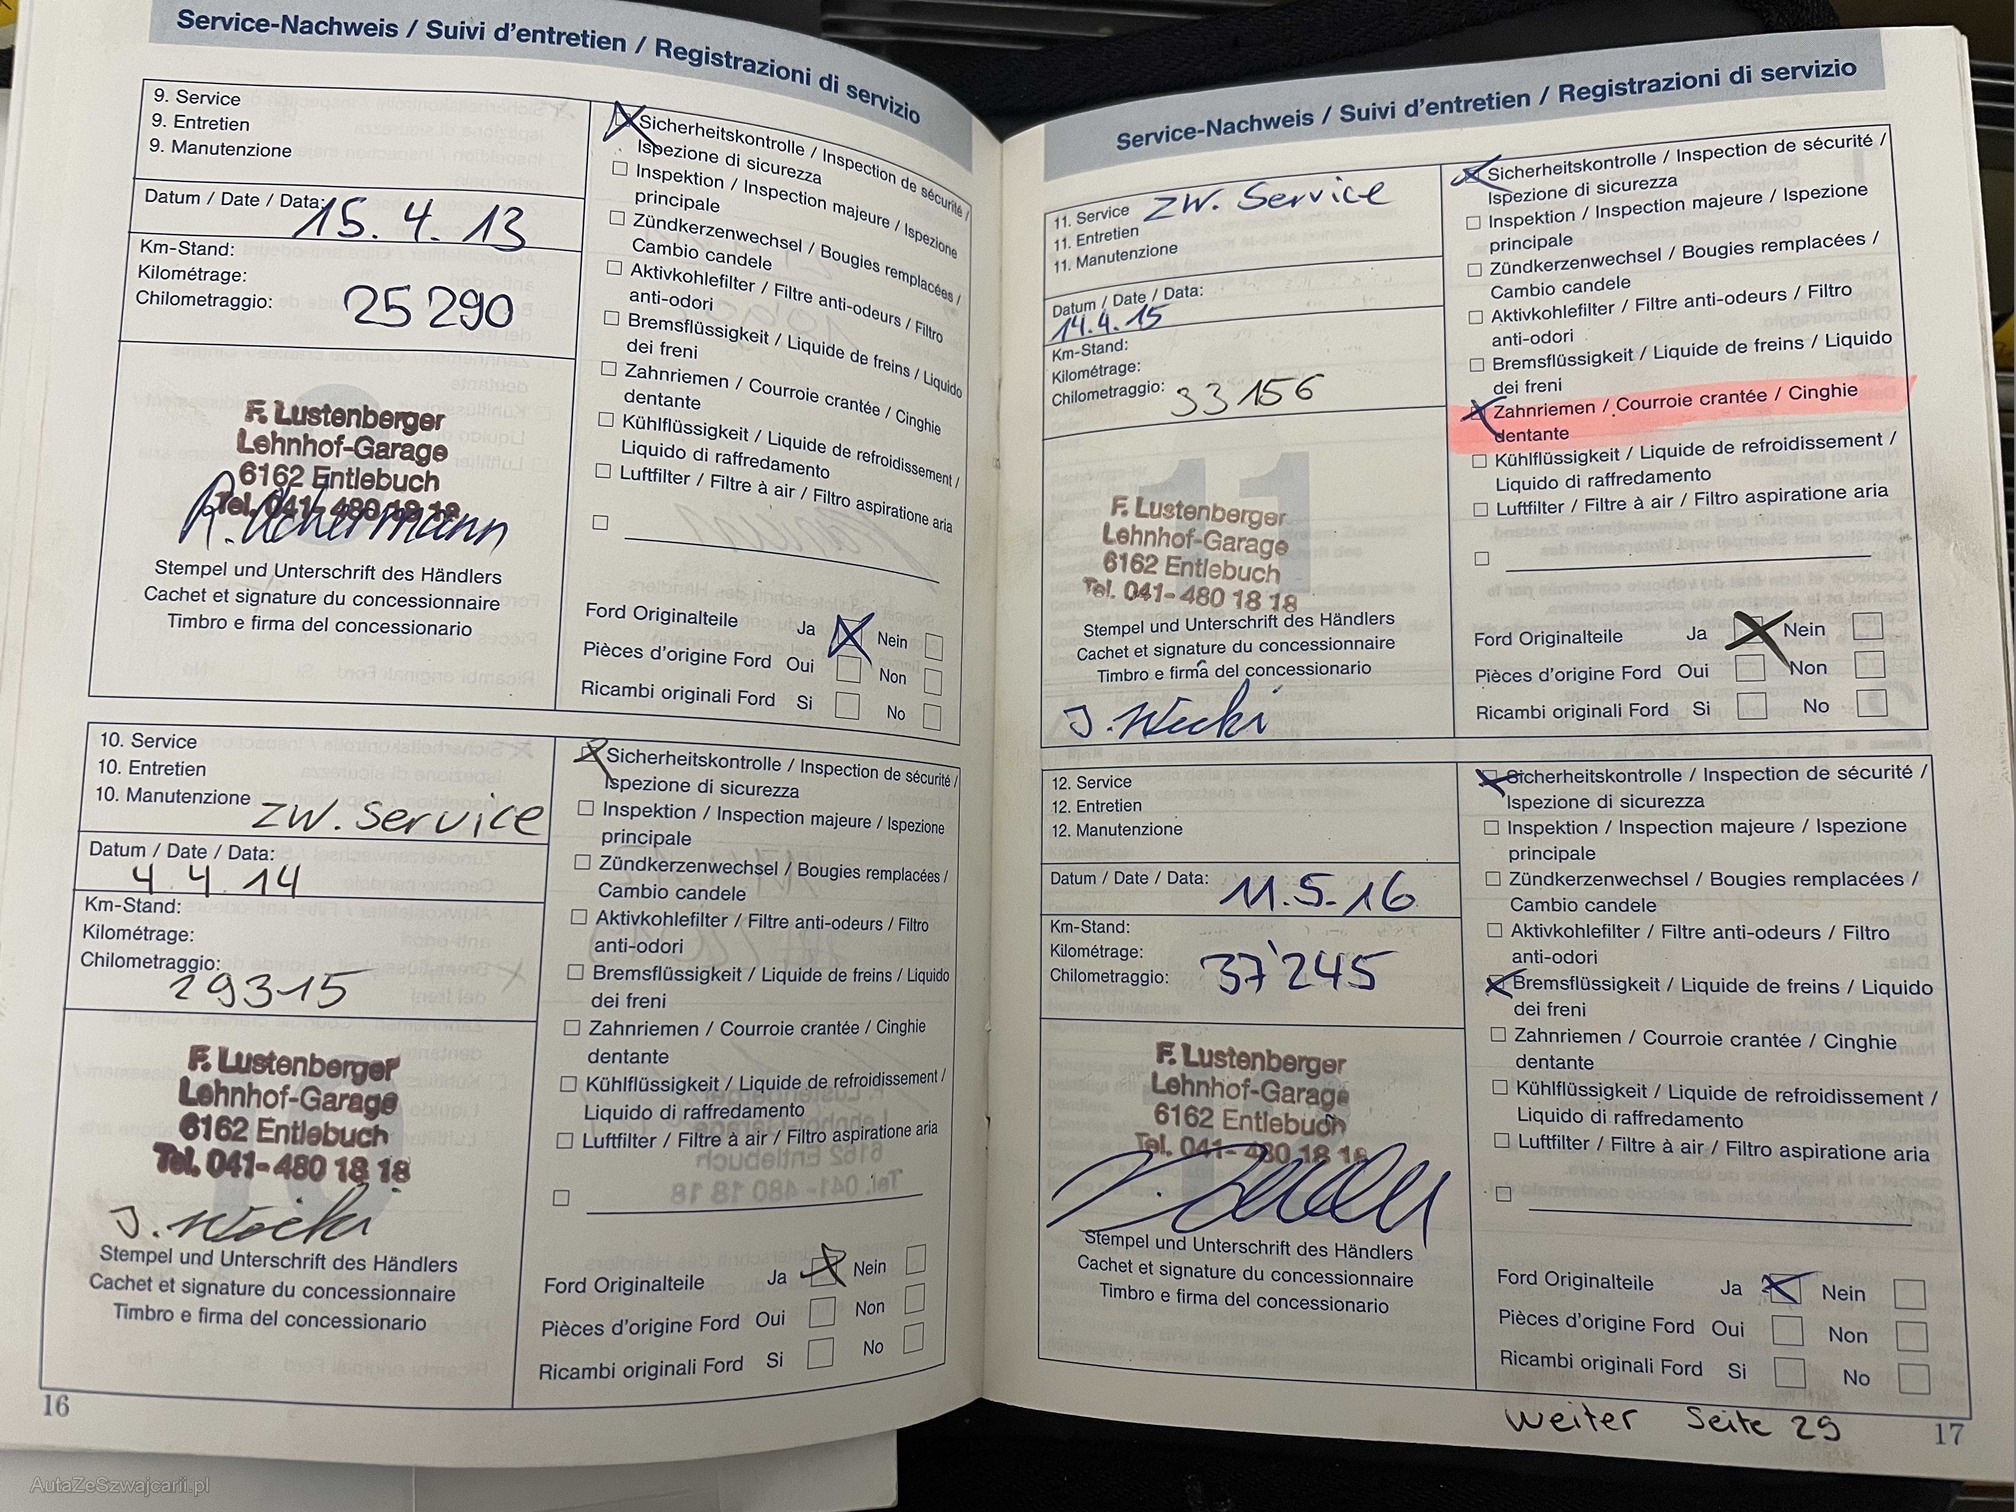 Service-Nachweis / Suivi d'entretien / Registrazioni di servizio
9. Service
9. Entretien
9. Manutenzione
Datum / Date / Data: 15. 4. 13
Km-Stand:
Kilométrage:
Chilometraggio: 25 290
F. Lustenberger
Lehnhof-Garage
6162 Entlebuch
Tel. 041- 480 18 18
R. Achermann
Stempel und Unterschrift des Händlers
Cachet et signature du concessionnaire
Timbro e firma del concessionario
Sicherheitskontrolle / Inspection de sécurité /
Ispezione di sicurezza
Inspektion / Inspection majeure / Ispezione
principale
Zündkerzenwechsel / Bougies remplacées /
Cambio candele
Aktivkohlefilter / Filtre anti-odeurs / Filtro
anti-odori
Bremsflüssigkeit / Liquide de freins / Liquido
dei freni
Zahnriemen / Courroie crantée / Cinghie
dentante
Kühlflüssigkeit / Liquide de refroidissement /
Liquido di raffredamento
Luftfilter / Filtre à air / Filtro aspiratione aria
Ford Originalteile Ja Nein
Pièces d'origine Ford Oui Non
Ricambi originali Ford Si No
10. Service
10. Entretien
10. Manutenzione ZW. Service
Datum / Date / Data:
4. 4. 14
Km-Stand:
Kilométrage:
Chilometraggio:
29315
F. Lustenberger
Lehnhof-Garage
6162 Entlebuch
Tel. 041- 480 18 18
Stempel und Unterschrift des Händlers
Cachet et signature du concessionnaire
Timbro e firma del concessionario
Sicherheitskontrolle / Inspection de sécurité /
Ispezione di sicurezza
Inspektion / Inspection majeure / Ispezione
principale
Zündkerzenwechsel / Bougies remplacées /
Cambio candele
Aktivkohlefilter / Filtre anti-odeurs / Filtro
anti-odori
Bremsflüssigkeit / Liquide de freins / Liquido
dei freni
Zahnriemen / Courroie crantée / Cinghie
dentante
Kühlflüssigkeit / Liquide de refroidissement /
Liquido di raffredamento
Luftfilter / Filtre à air / Filtro aspiratione aria
Ford Originalteile Ja Nein
Pièces d'origine Ford Oui Non
Ricambi originali Ford Si No
16
Service-Nachweis / Suivi d'entretien / Registrazioni di servizio
11. Service ZW. Service
11. Entretien
11. Manutenzione
Datum / Date / Data:
14.4.15
Km-Stand:
Kilométrage:
Chilometraggio: 33 156
11
F. Lustenberger
Lehnhof-Garage
6162 Entlebuch
Tel. 041- 480 18 18
Stempel und Unterschrift des Händlers
Cachet et signature du concessionnaire
Timbro e firma del concessionario
Sicherheitskontrolle / Inspection de sécurité /
Ispezione di sicurezza
Inspektion / Inspection majeure / Ispezione
principale
Zündkerzenwechsel / Bougies remplacées /
Cambio candele
Aktivkohlefilter / Filtre anti-odeurs / Filtro
anti-odori
Bremsflüssigkeit / Liquide de freins / Liquido
dei freni
Zahnriemen / Courroie crantée / Cinghie
dentante
Kühlflüssigkeit / Liquide de refroidissement /
Liquido di raffredamento
Luftfilter / Filtre à air / Filtro aspiratione aria
Ford Originalteile Ja Nein
Pièces d'origine Ford Oui Non
Ricambi originali Ford Si No
12. Service
12. Entretien
12. Manutenzione
Datum / Date / Data: 11.5.16
Km-Stand:
Kilométrage:
Chilometraggio: 37'245
F. Lustenberger
Lehnhof-Garage
6162 Entlebuch
Tel. 041- 480 18 18
Stempel und Unterschrift des Händlers
Cachet et signature du concessionnaire
Timbro e firma del concessionario
Sicherheitskontrolle / Inspection de sécurité /
Ispezione di sicurezza
Inspektion / Inspection majeure / Ispezione
principale
Zündkerzenwechsel / Bougies remplacées /
Cambio candele
Aktivkohlefilter / Filtre anti-odeurs / Filtro
anti-odori
Bremsflüssigkeit / Liquide de freins / Liquido
dei freni
Zahnriemen / Courroie crantée / Cinghie
dentante
Kühlflüssigkeit / Liquide de refroidissement /
Liquido di raffredamento
Luftfilter / Filtre à air / Filtro aspiratione aria
Ford Originalteile Ja Nein
Pièces d'origine Ford Oui Non
Ricambi originali Ford Si No
weiter Seite 29
17
AutaZeSzwajcarii.pl